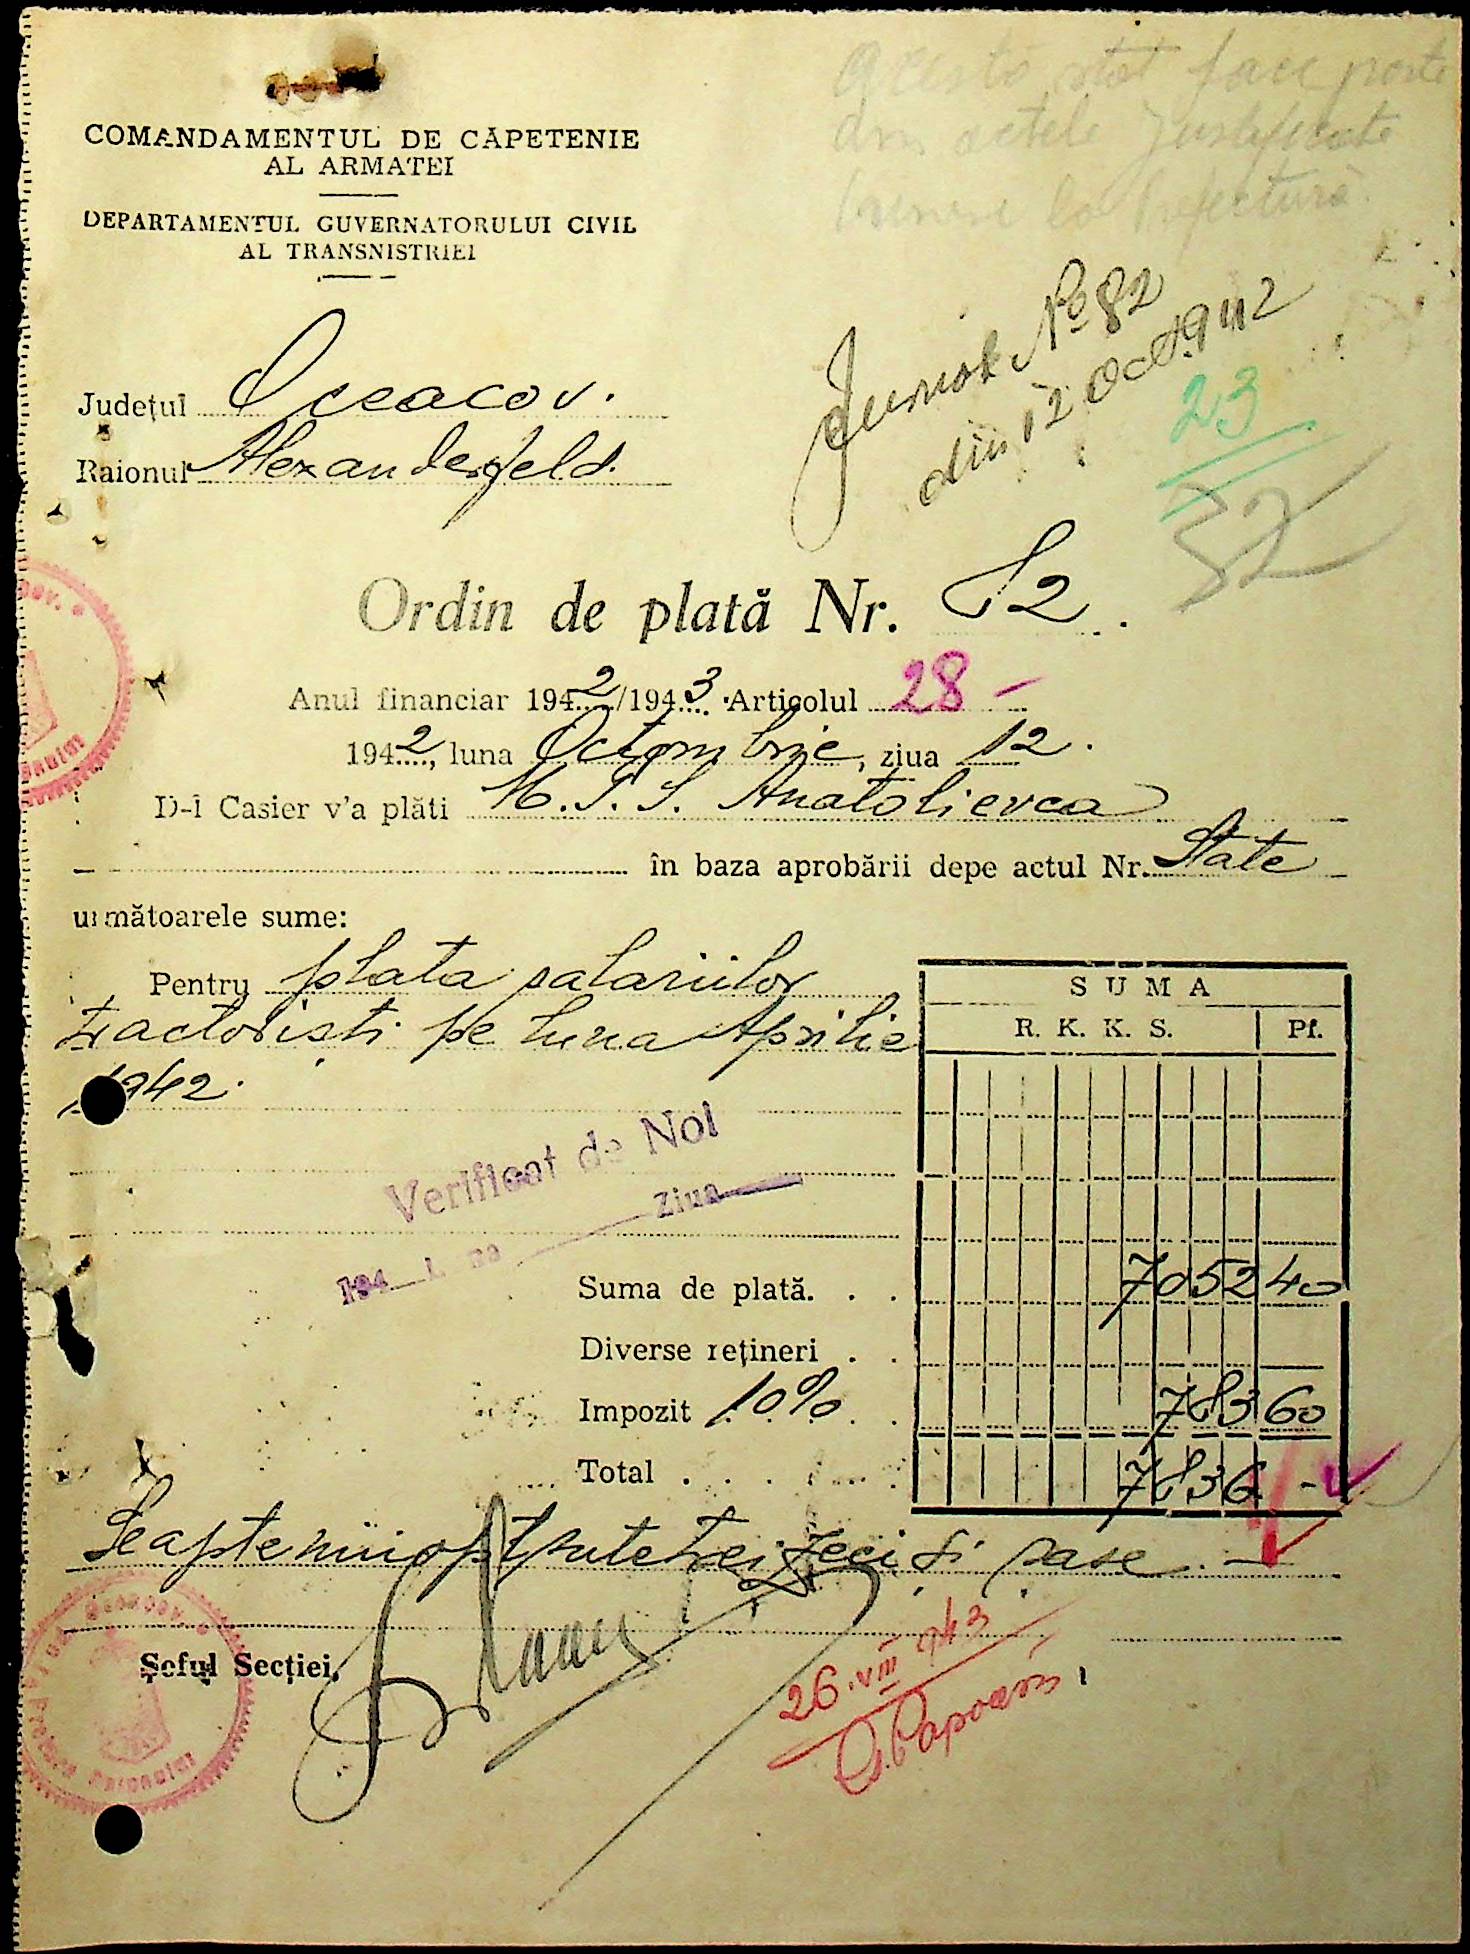 Acest stat face parte
din actele justificate
la Prefectură.
COMANDAMENTUL DE CĂPETENIE
AL ARMATEI
DEPARTAMENTUL GUVERNATORULUI CIVIL
AL TRANSNISTRIEI
Jurnal No 82
din 12 Oct. 942
23
32
Județul Oceacov.
Raionul Alexanderfeld.
Ordin de plată Nr. 82.
Anul financiar 1942/1943 Articolul 28 -
1942, luna Octombrie, ziua 12.
D-l Casier v'a plăti M.T.S. Anatolievca
în baza aprobării depe actul Nr. State
următoarele sume:
Pentru plata salariilor
tractoriști pe luna Aprilie
1942.
SUMA
R. K. K. S. Pf.
Verificat de Noi
194 L Ziua
Suma de plată. . . 7052 40
Diverse rețineri . . —
Impozit 10% . . 783 60
Total . . . 7836 -
Șeaptemiioptsutetreizeci și șase. —
Șeful Secției,
26.VIII 943